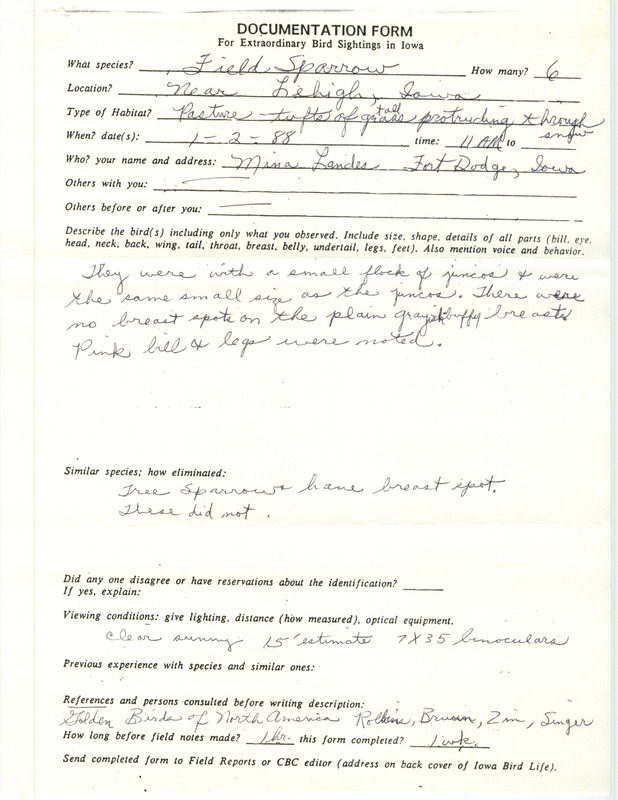 DOCUMENTATION FORM
For Extraordinary Bird Sightings in Iowa
What species? Field Sparrow How many? 6
Location? Near Lehigh, Iowa
Type of Habitat? Pasture - tufts of tall grass protruding through snow
When? date(s): 1-2-88 time: 11 AM to
Who? your name and address: Mina Landes Fort Dodge, Iowa
Others with you: —
Others before or after you: —
Describe the bird(s) including only what you observed. Include size, shape, details of all parts (bill, eye,
head, neck, back, wing, tail, throat, breast, belly, undertail, legs, feet). Also mention voice and behavior.
They were with a small flock of juncos & were
the same small size as the juncos. There were
no breast spots on the plain grayish buffy breasts.
Pink bill & legs were noted.
Similar species; how eliminated:
Tree Sparrows have breast spot.
These did not.
Did any one disagree or have reservations about the identification?
If yes, explain:
Viewing conditions: give lighting, distance (how measured), optical equipment.
clear sunny 15' estimate 7X35 binoculars
Previous experience with species and similar ones:
References and persons consulted before writing description:
Golden Birds of North America Robbins, Bruun, Zim, Singer
How long before field notes made? 1 hr. this form completed? 1 wk.
Send completed form to Field Reports or CBC editor (address on back cover of Iowa Bird Life).